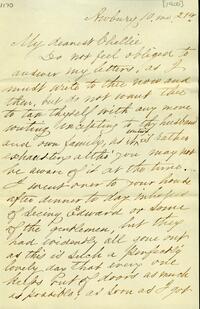 1170
[1900]
Newbury, 10, mo, 21st
My dearest Chellie
Do not feel obliged to
answer my letters, as I
must write to thee now and
then, but do not want thee
to tax thyself with any more
writing excepting to thy husband
and own family, as it is rather
exhausting altho you may not
be aware of it at the time.
I went over to your house
after dinner to day in hopes
of seeing Edward or some
of the gentlemen, but they
had evidently all gone out
as this is such a perfectly
lovely day that every one
keeps out of doors as much
as possible, as soon as I got